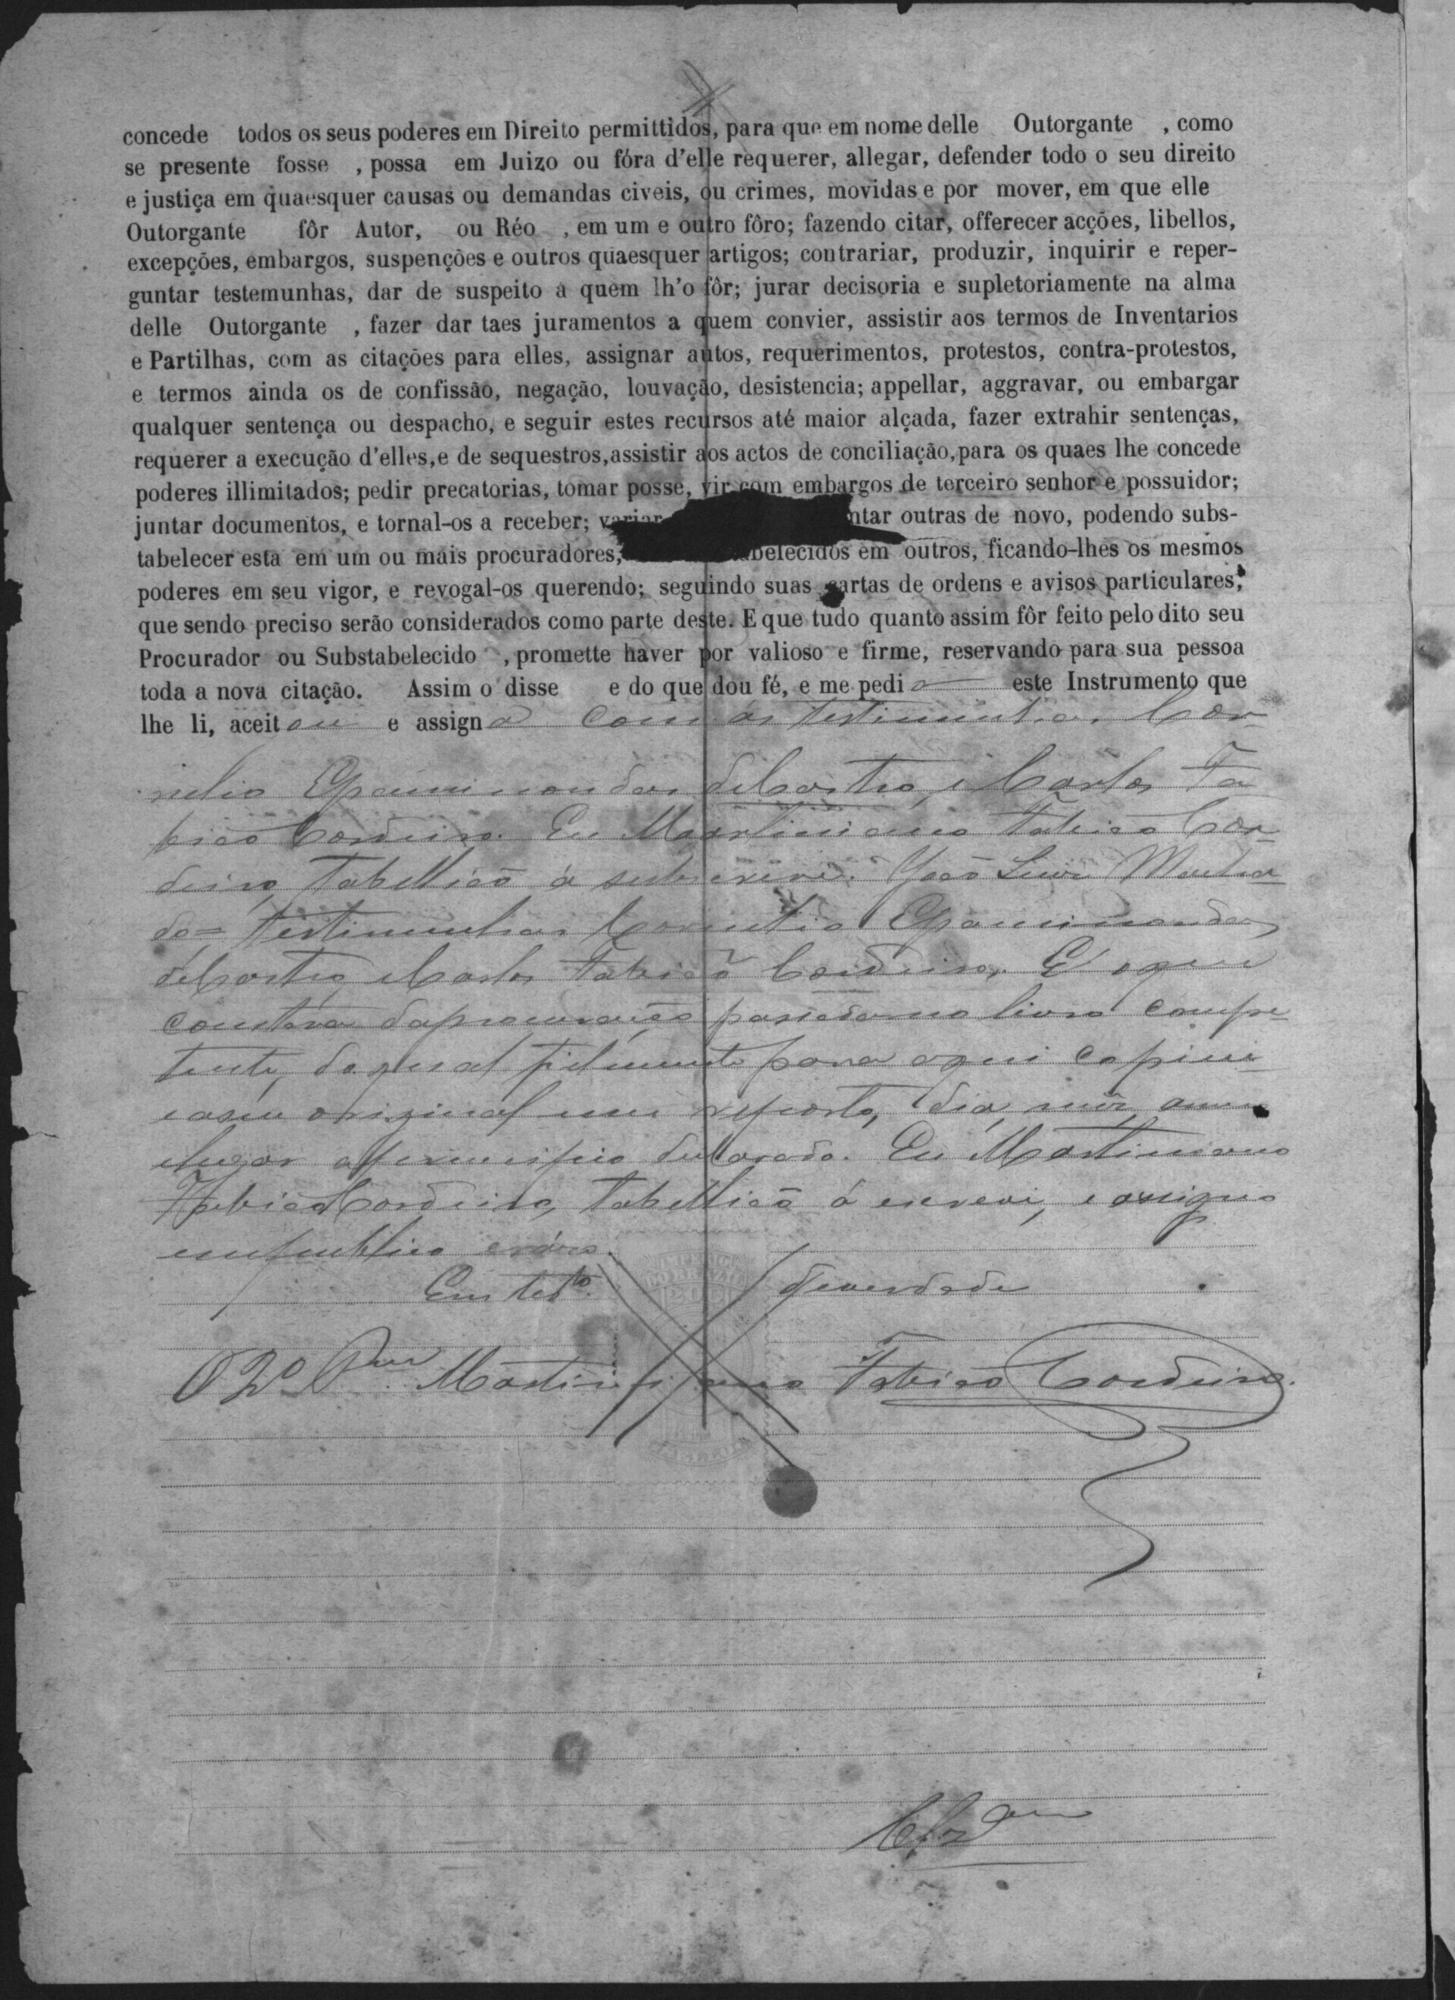 concede todos os seus poderes em Direito permittidos, para que em nome delle Outorgante , como
se presente fosse , possa em Juizo ou fóra d'elle requerer, allegar, defender todo o seu direito
e justiça em quaesquer causas ou demandas civeis, ou crimes, movidas e por mover, em que elle
Outorgante fôr Autor, ou Réo , em um e outro fôro; fazendo citar, offerecer acções, libellos,
excepções, embargos, suspenções e outros quaesquer artigos; contrariar, produzir, inquirir e reper-
guntar testemunhas, dar de suspeito a quem lh'o fôr; jurar decisoria e supletoriamente na alma
delle Outorgante , fazer dar taes juramentos a quem convier, assistir aos termos de Inventarios
e Partilhas, com as citações para elles, assignar autos, requerimentos, protestos, contra-protestos,
e termos ainda os de confissão, negação, louvação, desistencia; appellar, aggravar, ou embargar
qualquer sentença ou despacho, e seguir estes recursos até maior alçada, fazer extrahir sentenças,
requerer a execução d'elles, e de sequestros, assistir aos actos de conciliação, para os quaes lhe concede
poderes illimitados; pedir precatorias, tomar posse, vir com embargos de terceiro senhor e possuidor;
juntar documentos, e tornal-os a receber; variar ntar outras de novo, podendo subs-
tabelecer esta em um ou mais procuradores, belecidos em outros, ficando-lhes os mesmos
poderes em seu vigor, e revogal-os querendo; seguindo suas cartas de ordens e avisos particulares,
que sendo preciso serão considerados como parte deste. E que tudo quanto assim fôr feito pelo dito seu
Procurador ou Substabelecido , promette haver por valioso e firme, reservando para sua pessoa
toda a nova citação. Assim o disse e do que dou fé, e me pedio este Instrumento que
lhe li, aceitou e assigna com as testimunhas Cor
nelio Epaminondas de Castro, e Carlos Fa
bião Cordeiro. Eu Martiniano Fabião Cor
deiro, Tabellião á subscrevi. João Machado
do= testimunhas Cornelio Epaminondas
de Castro, e Carlos Fabião Cordeiro. E' o que
constava da procuração passada no livro compe
tente, do qual fielmente para aqui copiei
e ao seu original me reporto, dia, mêz, anno
e lugar a principio declarado. Eu Martiniano
Fabião Cordeiro, Tabellião á escrevi, e assigno
em publico e ráso.
Em testo. de verdade
O 2º Martiniano Fabião Cordeiro.